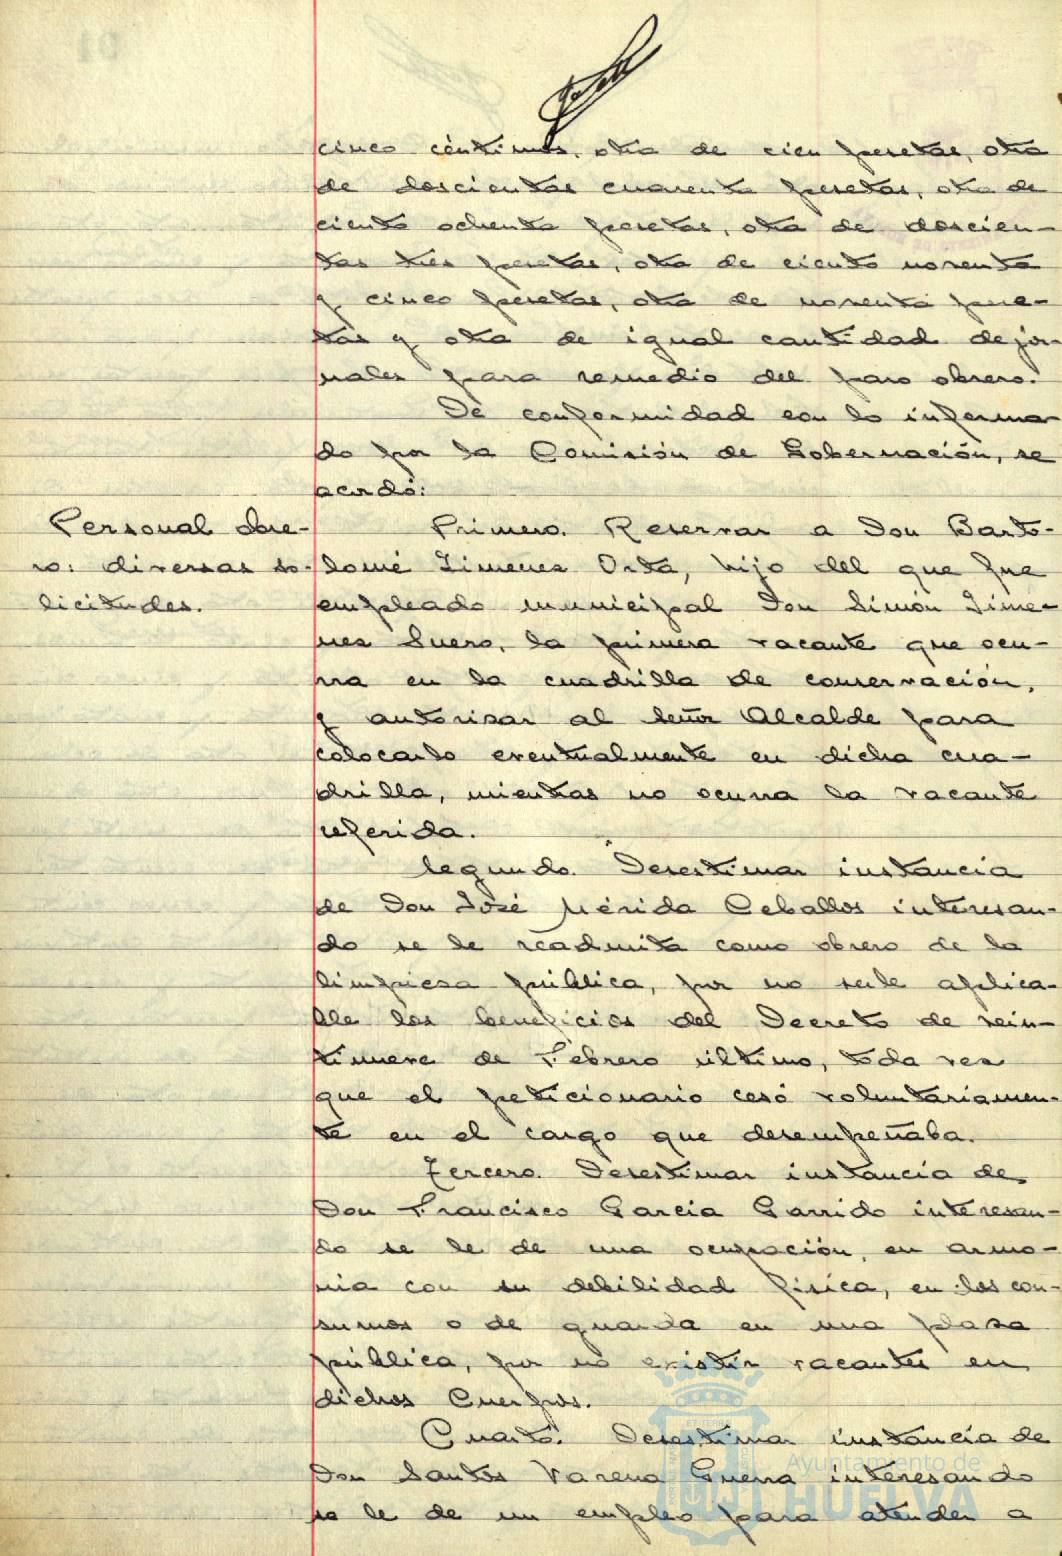 cinco céntimos, otra de cien pesetas, otra
de doscientas cuarenta pesetas, otra de
ciento ochenta pesetas, otra de doscien-
tas tres pesetas, otra de ciento noventa
y cinco pesetas, otra de noventa pese-
tas y otra de igual cantidad de jor-
nales para remedio del paro obrero.
De conformidad con lo informa-
do por la Comisión de Gobernación, se
acordó:
Personal obre-
ro: diversas so-
licitudes.
Primero. Reservar a Don Barto-
lomé Jimenez Orta, hijo del que fue
empleado municipal Don Simón Jime-
nez Suero, la primera vacante que ocu-
rra en la cuadrilla de conservación,
y autorizar al Señor Alcalde para
colocarlo eventualmente en dicha cua-
drilla, mientras no ocurra la vacante
referida.
Segundo. Desestimar instancia
de Don José Mérida Ceballos interesan-
do se le readmita como obrero de la
limpieza pública, por no serle aplica-
ble los beneficios del Decreto de vein-
tinueve de Febrero último, toda vez
que el peticionario cesó voluntariamen-
te en el cargo que desempeñaba.
Tercero. Desestimar instancia de
Don Francisco Garcia Garrido interesan-
do se le de una ocupación, en armo-
nia con su debilidad fisica, en los con-
sumos o de guarda en una plaza
pública, por no existir vacantes en
dichos Cuerpos.
Cuarto. Desestimar instancia de
Don Santos Varena Guerra interesando
se le de un empleo para atender a
Ayuntamiento de
HUELVA